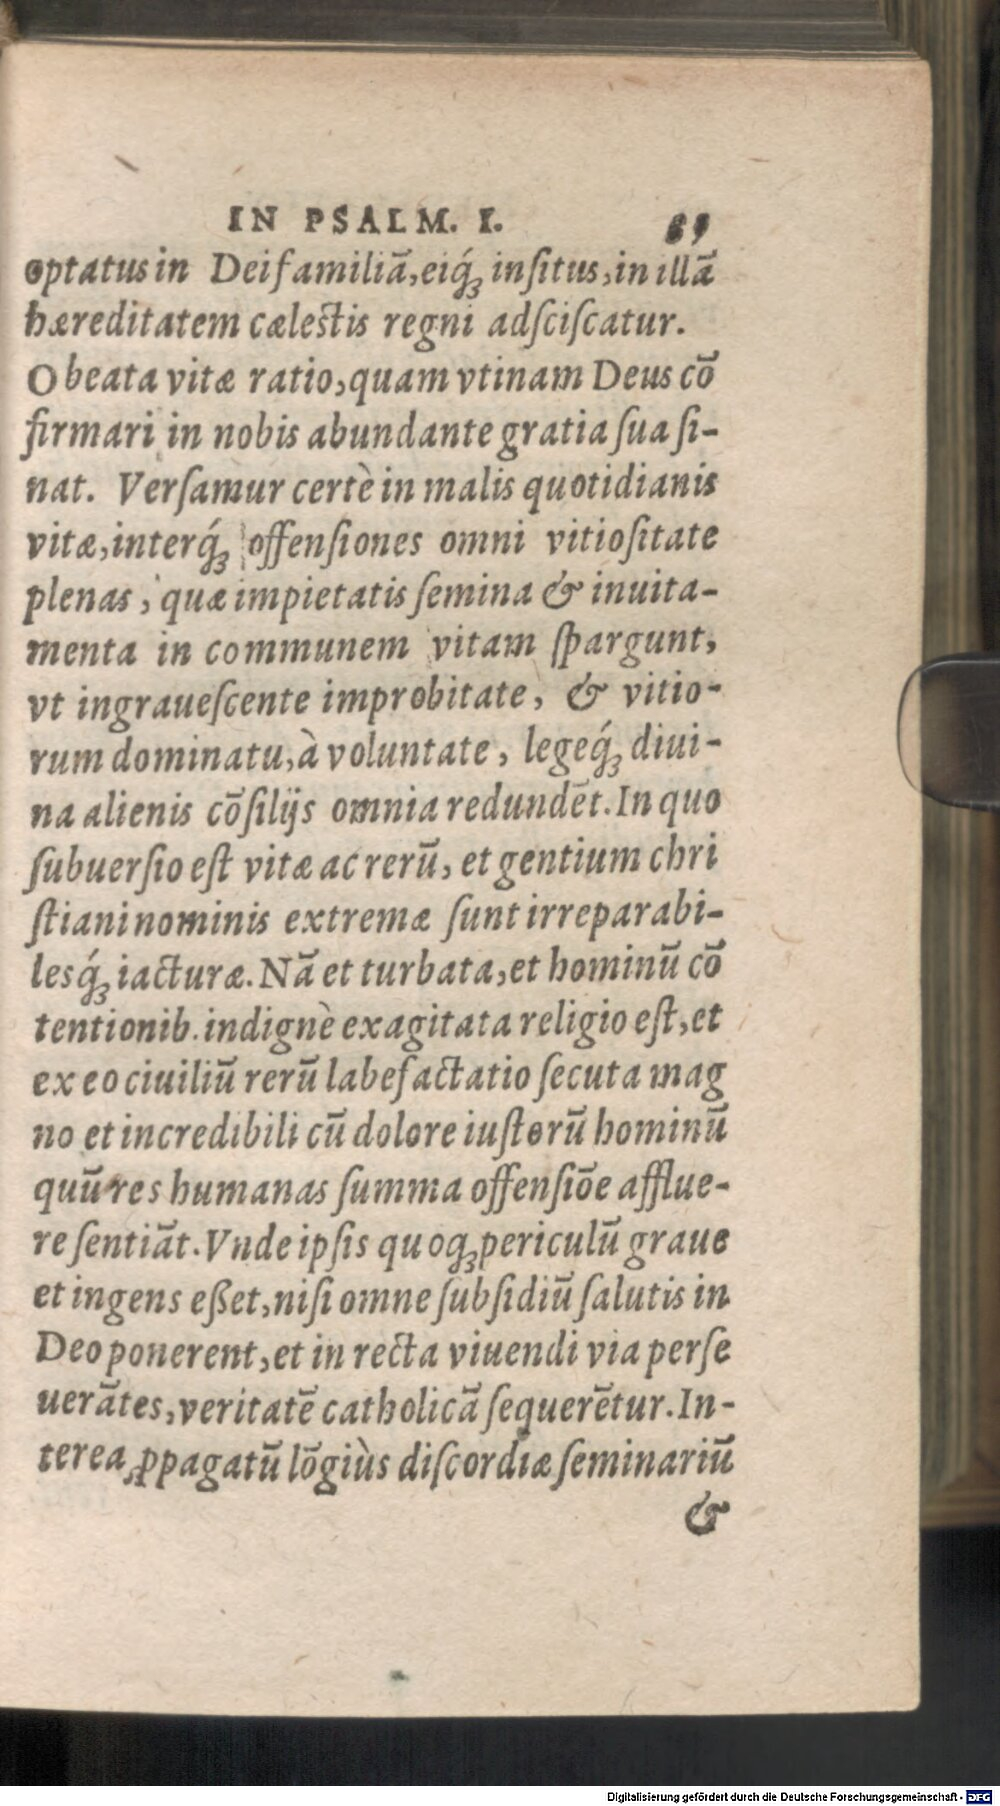 IN PSALM. I. 89
optatus in Dei familiã, eiq́ꝫ inſitus, in illã
hæreditatem cæleſtis regni adſciſcatur.
O beata vitæ ratio, quam vtinam Deus cõ
firmari in nobis abundante gratia ſua ſi-
nat. Verſamur certè in malis quotidianis
vitæ, interq́ꝫ offenſiones omni vitioſitate
plenas, quæ impietatis ſemina & inuita-
menta in communem vitam ſpargunt,
vt ingraueſcente improbitate, & vitio-
rum dominatu, à voluntate, legeq́ꝫ diui-
na alienis cõſilijs omnia redundẽt. In quo
ſubuerſio eſt vitæ ac rerũ, et gentium chri
ſtiani nominis extremæ ſunt irreparabi-
lesq́ꝫ iacturæ. Nã et turbata, et hominũ cõ
tentionib. indignè exagitata religio eſt, et
ex eo ciuiliũ rerũ labefactatio ſecuta mag
no et incredibili cũ dolore iuſtorũ hominũ
quũ res humanas ſumma offenſiõe afflue-
re ſentiãt. Vnde ipſis quoqꝫ periculũ graue
et ingens eßet, niſi omne ſubſidiũ ſalutis in
Deo ponerent, et in recta viuendi via perſe
uerãtes, veritatẽ catholicã ſequerẽtur. In-
terea ꝓpagatũ lõgiùs diſcordiæ ſeminariũ
&
Digitalisierung gefördert durch die Deutsche Forschungsgemeinschaft - DFG